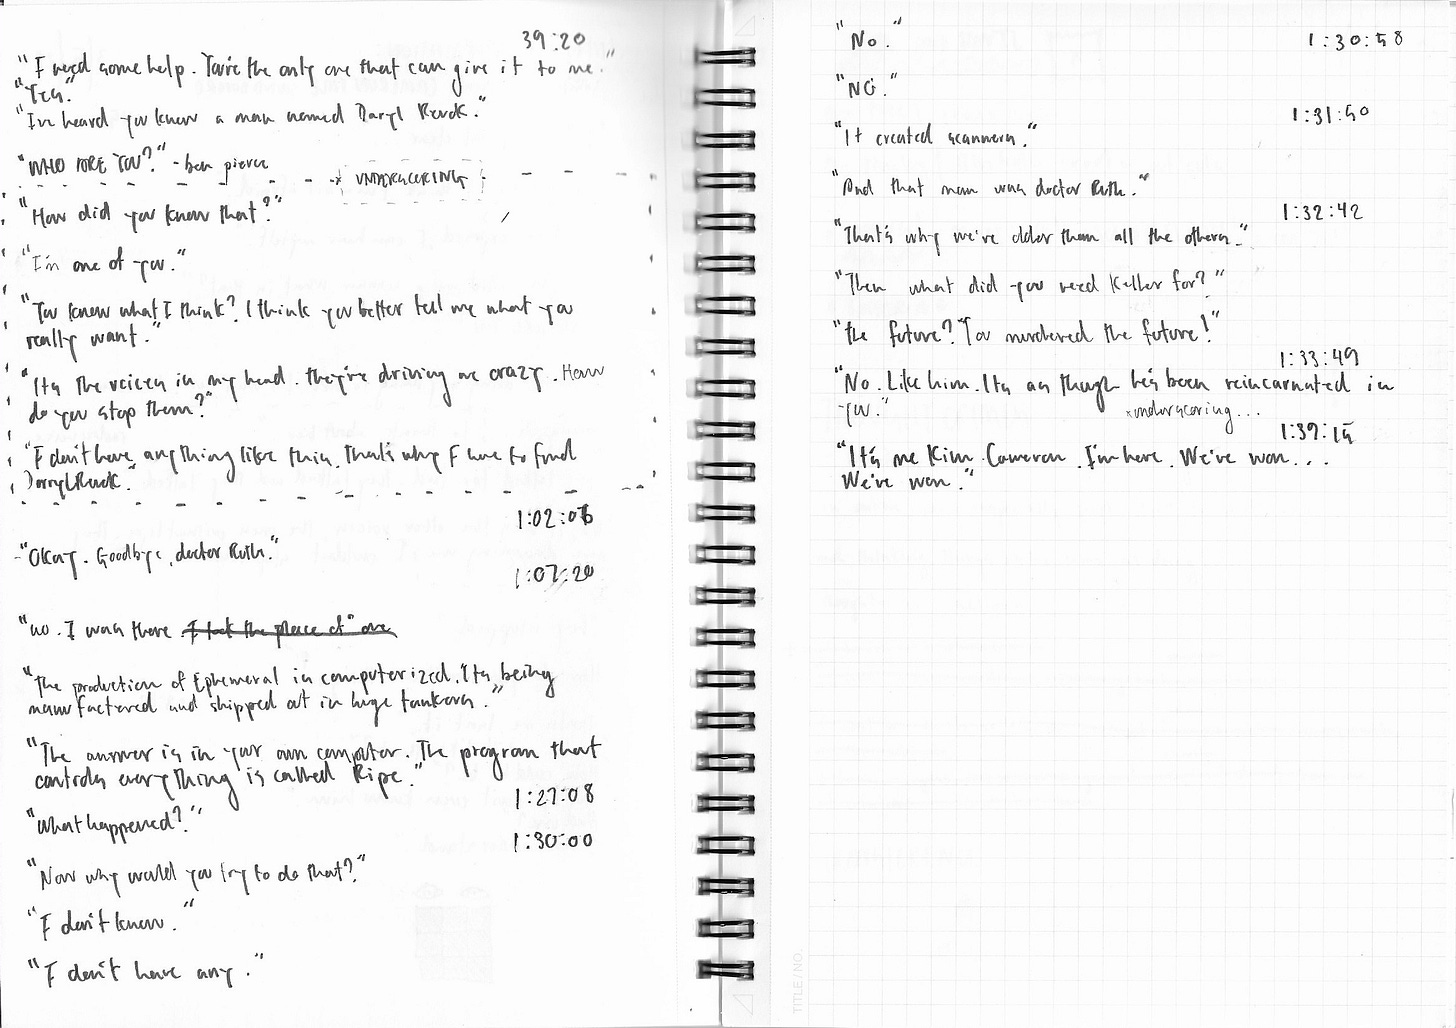 39:20
"I need some help. You're the only one that can give it to me."
"Yes."
"I've heard you knew a man named Daryl Revok."
"WHO ARE YOU?" - ben pierce
UNDERSCORING
"How did you know that?"
"I'm one of you."
"You know what I think? I think you better tell me what you
really want."
"Its the voices in my head. they're driving me crazy. How
do you stop them?"
"I don't have anything like this. That's why I have to find
Darryl Revok."
1:02:06
"Okay. Goodbye, doctor Ruth."
1:07:20
"no. I was there I took the place of" one
"The production of Ephemeral is computerized. Its being
manufactured and shipped out in huge tankers."
"The answer is in your own computer. The program that
controls everything is called Ripe."
1:27:08
"What happened?"
1:30:00
"Now why would you try to do that?"
"I don't know."
"I don't have any."
"No."
1:30:58
"NO."
1:31:50
"It created scanners."
"And that man was doctor Ruth."
1:32:42
"That's why we're older than all the others."
"Then what did you need Keller for?"
"the future? You murdered the future!"
1:33:49
"No. Like him. Its as though he's been reincarnated in
you."
underscoring...
1:39:15
"It's me Kim. Cameron. I'm here. We've won...
We've won."
TITLE/NO.